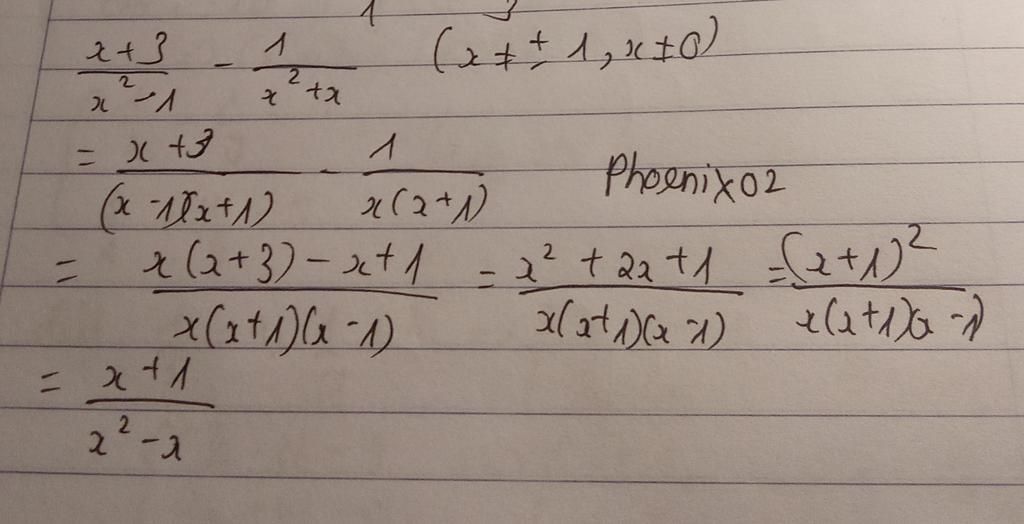 (x+3)/(x²-1) - 1/(x²+x) (x ≠ ± 1, x ≠ 0)
= (x+3)/((x-1)(x+1)) - 1/(x(x+1)) Phoenix02
= (x(x+3)-x+1)/(x(x+1)(x-1)) = (x²+2x+1)/(x(x+1)(x-1)) = (x+1)²/(x(x+1)(x-1))
= (x+1)/(x²-x)